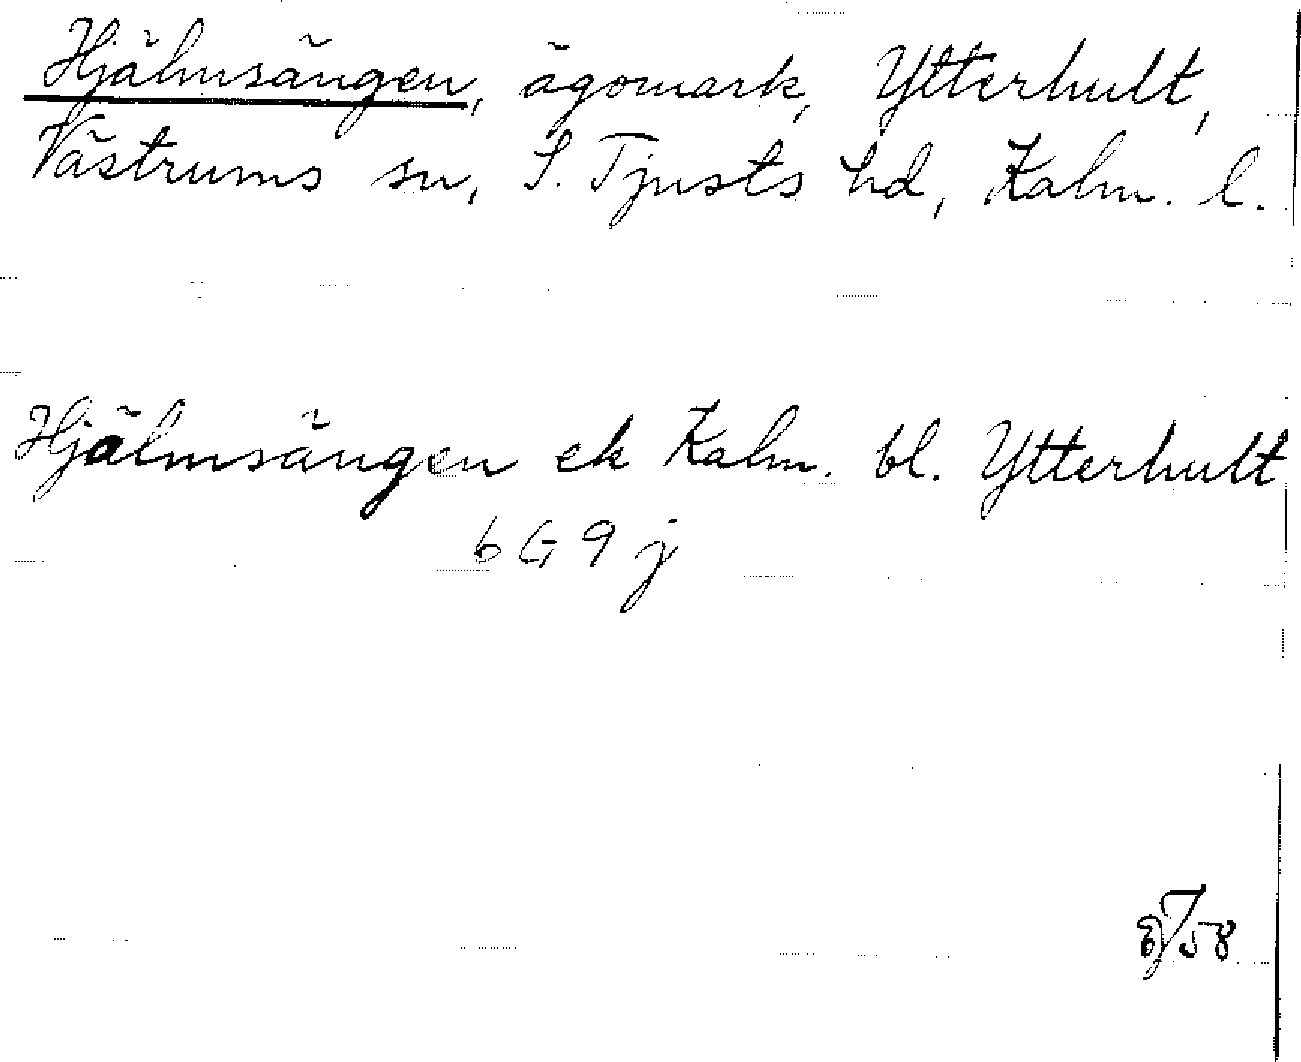 Hjälmsängen, ägomark, Ytterhult,
Västrums sn, S. Tjusts hd, Kalm. l.
Hjälmsängen ek Kalm. bl. Ytterhult
6 G 9 j
58